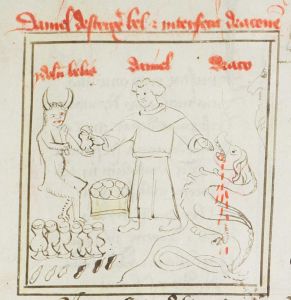 Daniel destruxit bel & interfecit draconē
ydolū belis daniel draco